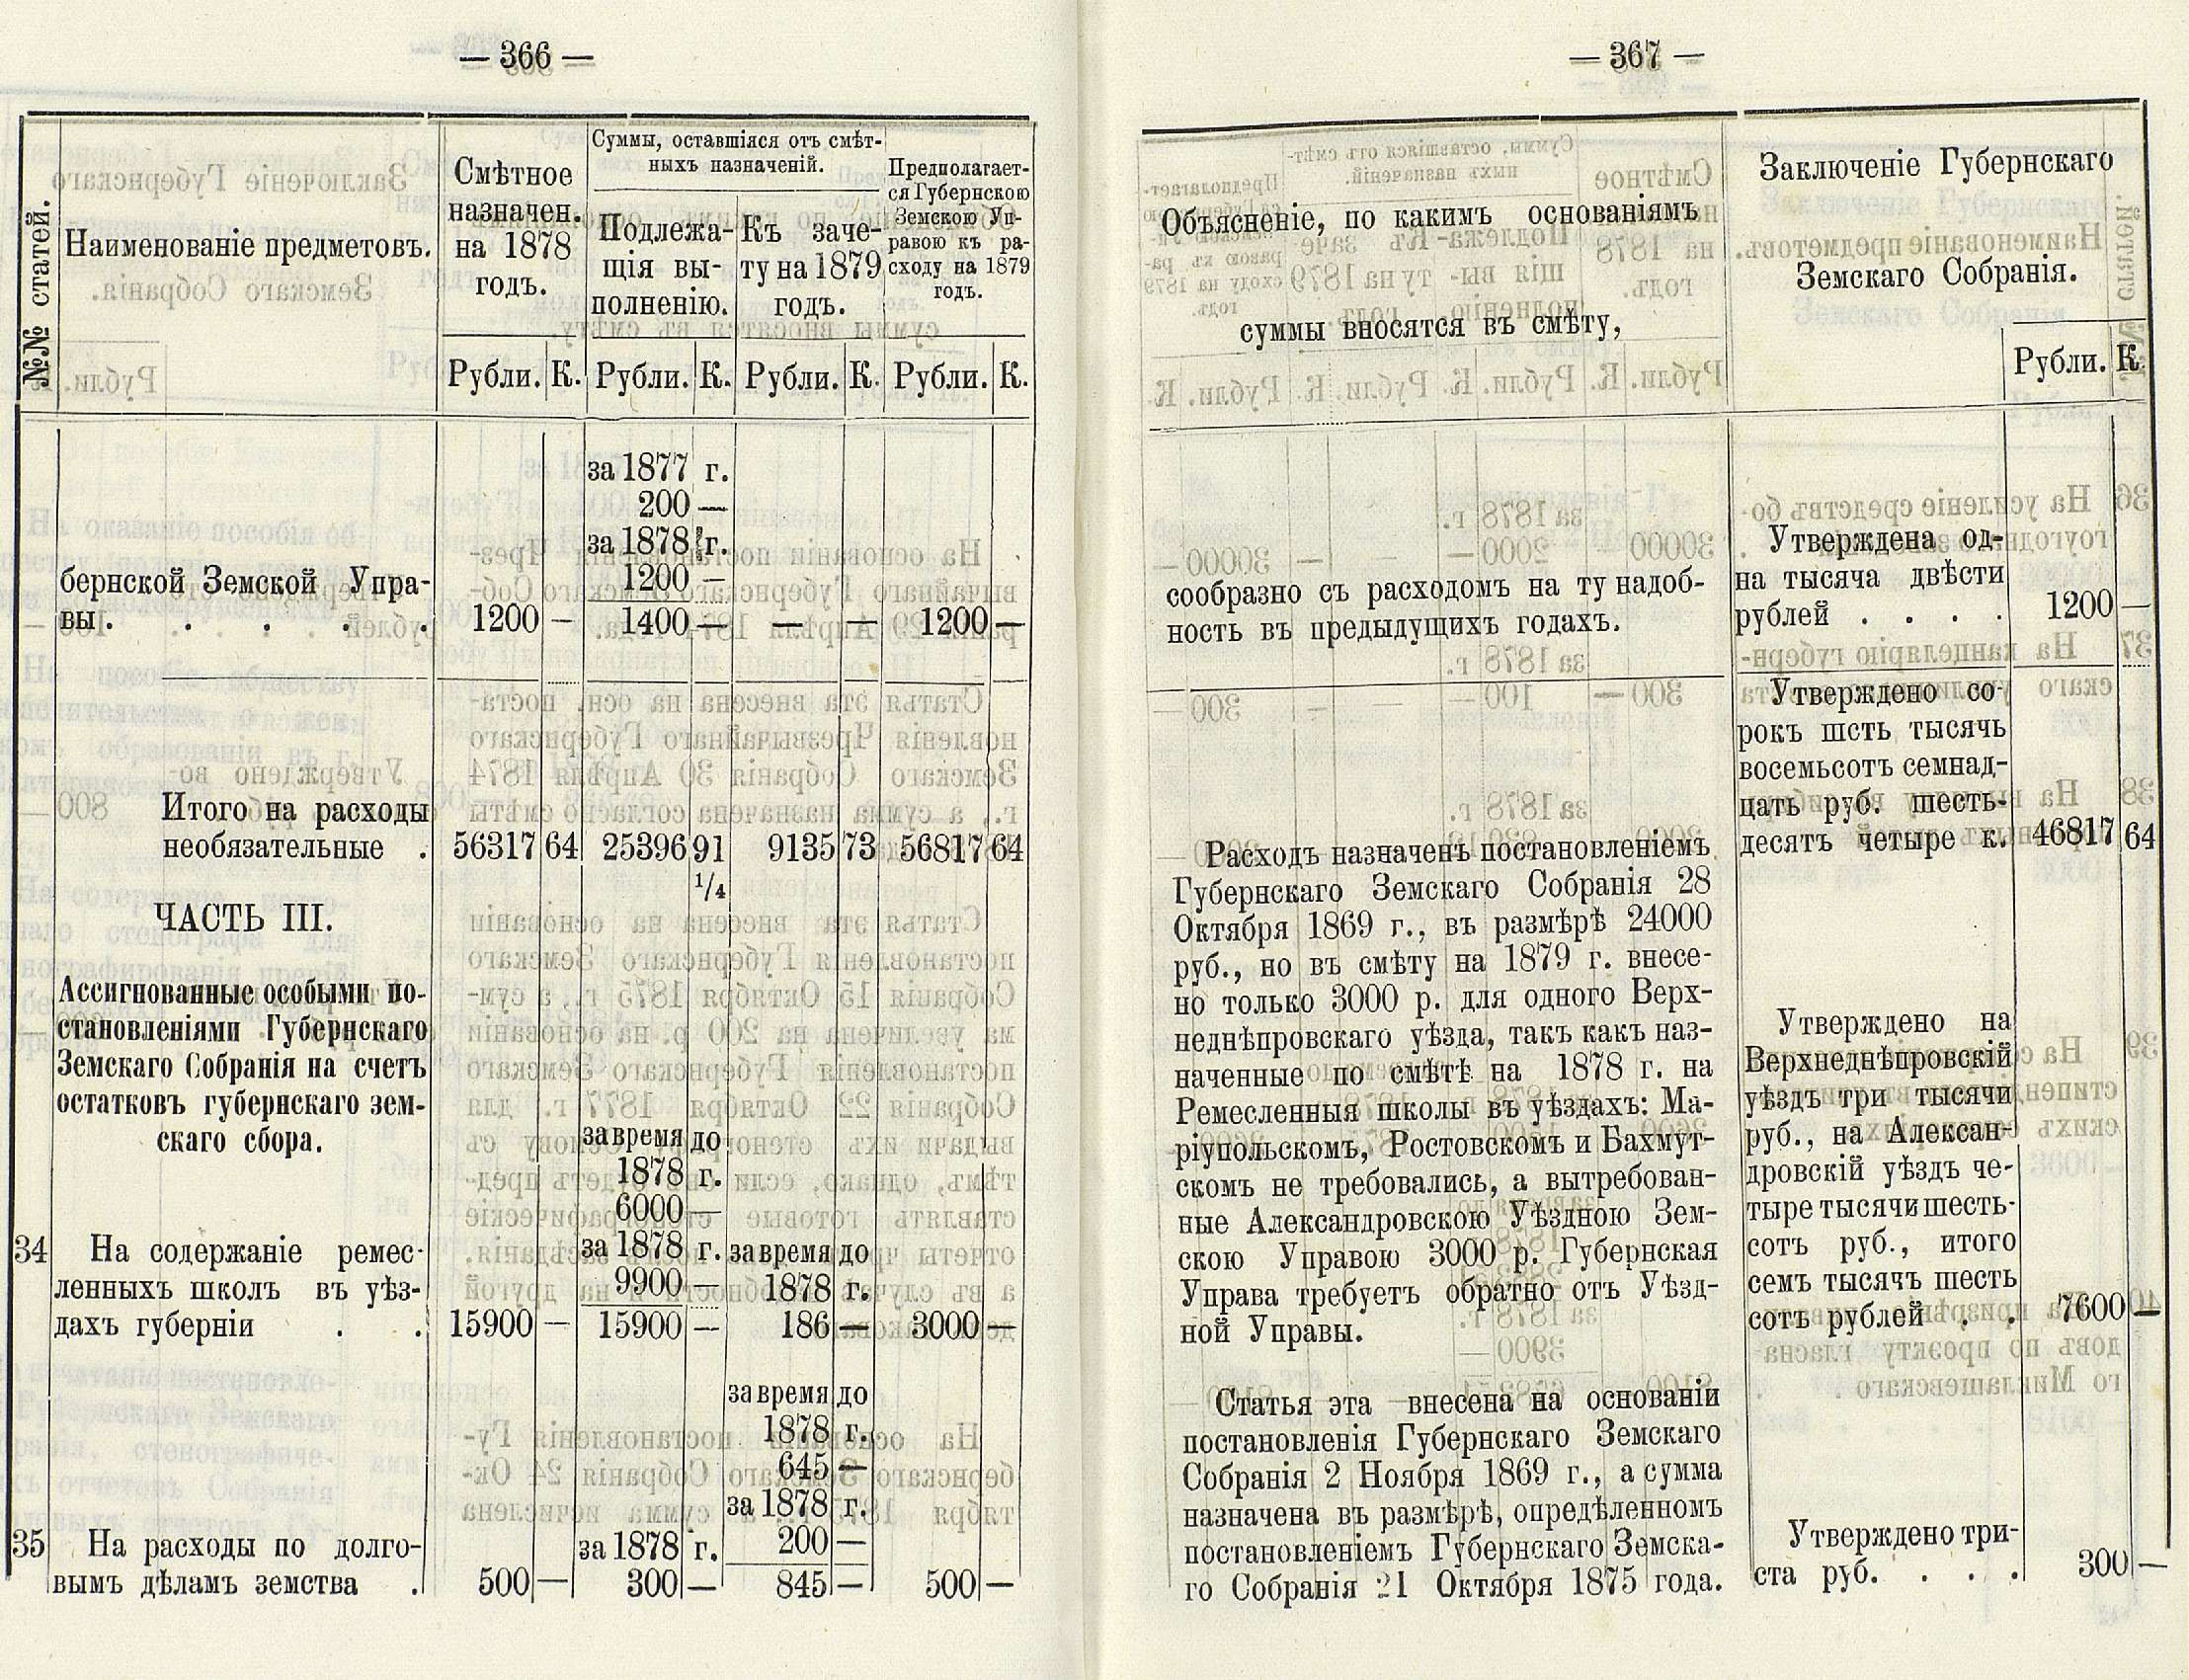 — 366 —
№№ статей.
Наименованіе предметовъ.
Смѣтное
назначен.
на 1878
годъ.
Суммы, оставшіяся отъ смѣт-
ныхъ назначеній.
Подлежа-
щія вы-
полненію.
Къ заче-
ту на 1879
годъ.
Предполагает-
ся Губернскою
Земскою Уп-
равою къ ра-
сходу на 1879
годъ.
Рубли. К. Рубли. К. Рубли. К. Рубли. К.
за 1877 г.
200 —
за 1878 г.
1200 —
бернской Земской Упра-
вы. . . . . . 1200 — 1400 — — — 1200 —
Итого на расходы
необязательные . 56317 64 25396 91 9135 73 56817 64
1/4
ЧАСТЬ III.
Ассигнованные особыми по-
становленіями Губернскаго
Земскаго Собранія на счетъ
остатковъ губернскаго зем-
скаго сбора.
за время до
1878 г.
6000 —
34 На содержаніе ремес- за 1878 г. за время до
ленныхъ школъ въ уѣз- 9900 — 1878 г.
дахъ губерніи . . 15900 — 15900 — 186 — 3000 —
за время до
1878 г.
645 —
за 1878 г.
35 На расходы по долго- за 1878 г. 200 —
вымъ дѣламъ земства . 500 — 300 — 845 — 500 —
— 367 —
Объясненіе, по какимъ основаніямъ
суммы вносятся въ смѣту,
Заключеніе Губернскаго
Земскаго Собранія.
Рубли. К.
сообразно съ расходомъ на ту надоб-
ность въ предыдущихъ годахъ.
Утверждена од-
на тысяча двѣсти
рублей . . . . 1200 —
Утверждено со-
рокъ шсть тысячь
восемьсотъ семнад-
цать руб. шесть-
десятъ четыре к. 46817 64
Расходъ назначенъ постановленіемъ
Губернскаго Земскаго Собранія 28
Октября 1869 г., въ размѣрѣ 24000
руб., но въ смѣту на 1879 г. внесе-
но только 3000 р. для одного Верх-
неднѣпровскаго уѣзда, такъ какъ наз-
наченные по смѣтѣ на 1878 г. на
Ремесленныя школы въ уѣздахъ: Ма-
ріупольскомъ, Ростовскомъ и Бахмут-
скомъ не требовались, а вытребован-
ные Александровскою Уѣздною Зем-
скою Управою 3000 р. Губернская
Управа требуетъ обратно отъ Уѣзд-
ной Управы.
Утверждено на
Верхнеднѣпровскій
уѣздъ три тысячи
руб., на Алексан-
дровскій уѣздъ че-
тыре тысячи шесть-
сотъ руб., итого
семъ тысячъ шесть
сотъ рублей . . 7600 —
Статья эта внесена на основаніи
постановленія Губернскаго Земскаго
Собранія 2 Ноября 1869 г., а сумма
назначена въ размѣрѣ, опредѣленномъ
постановленіемъ Губернскаго Земска-
го Собранія 21 Октября 1875 года.
Утверждено три-
ста руб. . . . . 300 —